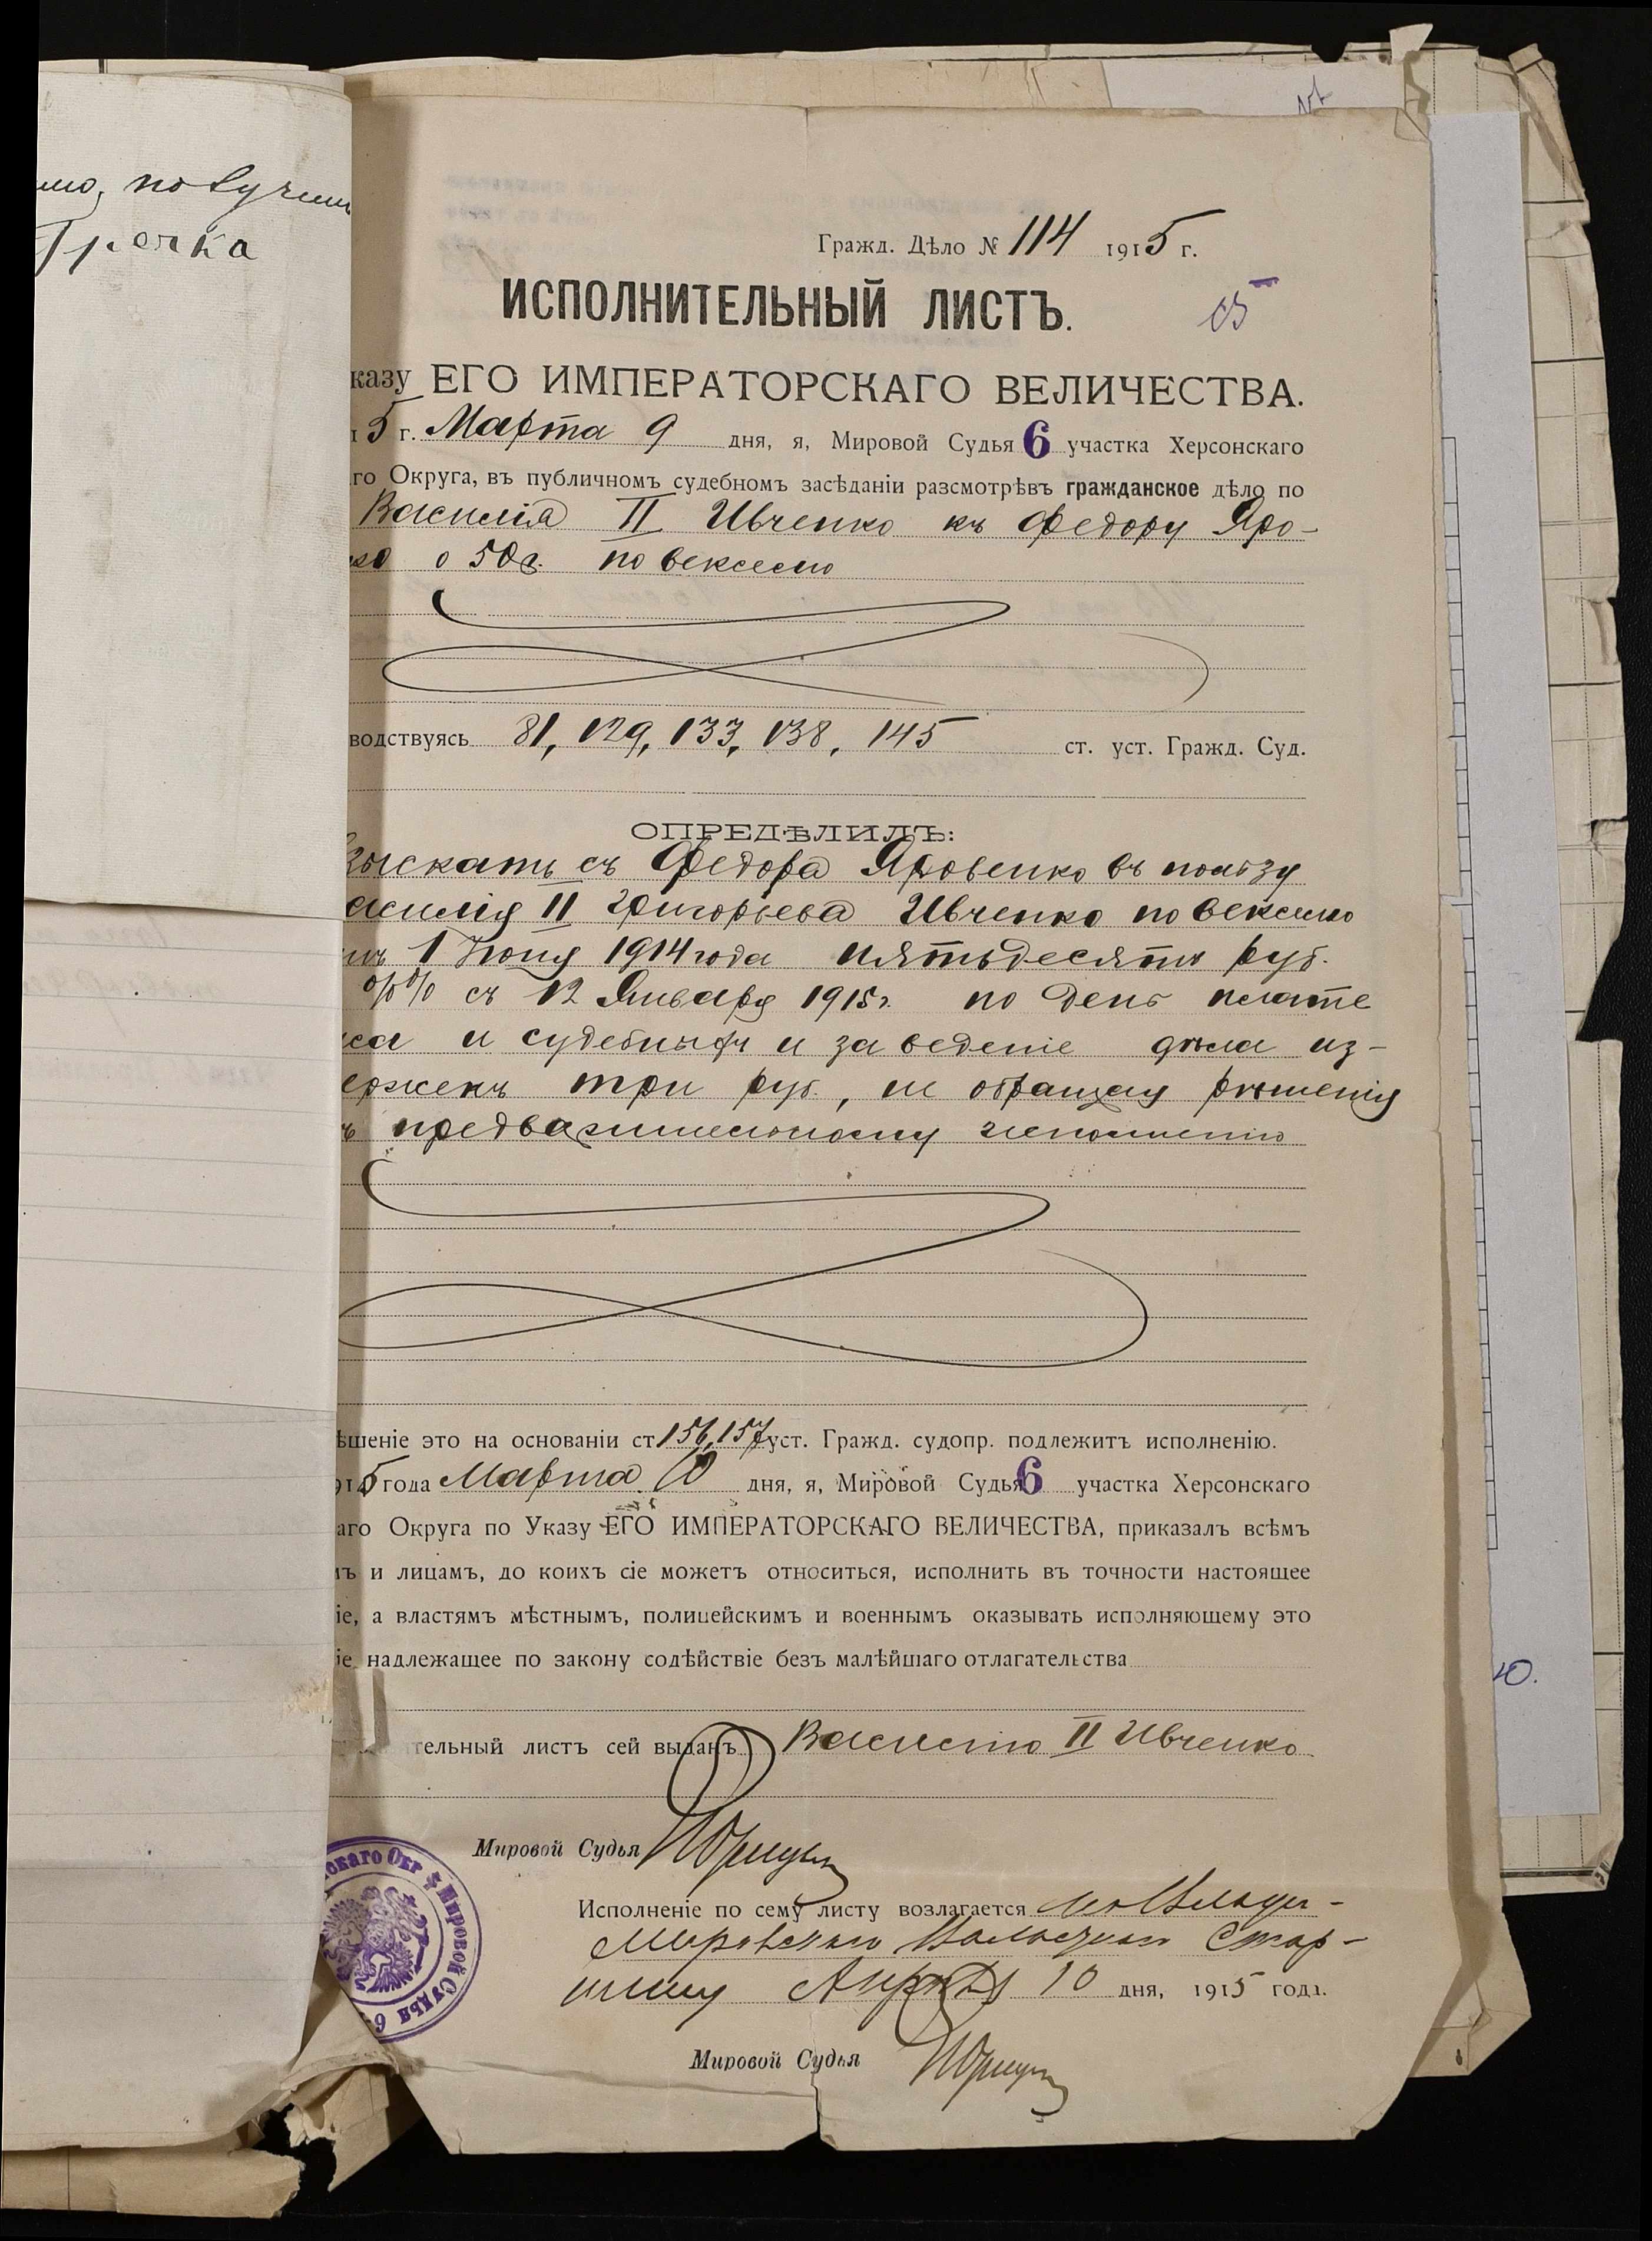 получил
Гречка
Гражд. Дѣло № 114 1915 г.
ИСПОЛНИТЕЛЬНЫЙ ЛИСТЪ.
казу ЕГО ИМПЕРАТОРСКАГО ВЕЛИЧЕСТВА.
15 г. Марта 9 дня, я, Мировой Судья 6 участка Херсонскаго
го Округа, въ публичномъ судебномъ засѣданіи разсмотрѣвъ гражданское дѣло по
Василія II Ивченко къ Федору Яро-
ко о 50 р. по векселю
водствуясь 81, 129, 133, 138, 145 ст. уст. Гражд. Суд.
ОПРЕДѢЛИЛЪ:
зыскать съ Федора Яровенко въ пользу
асилія II Григорьева Ивченко по векселю
1 Іюня 1914 года пятьдесятъ руб.
%% съ 12 Января 1915 г. по день плате
жа и судебныхъ и за веденіе дѣла из-
ержекъ три руб., не обращая рѣшенія
ъ предварительному исполненію
ѣшеніе это на основаніи ст 156, 157 уст. Гражд. судопр. подлежитъ исполненію.
915 года Марта 10 дня, я, Мировой Судья 6 участка Херсонскаго
аго Округа по Указу ЕГО ИМПЕРАТОРСКАГО ВЕЛИЧЕСТВА, приказалъ всѣмъ
ъ и лицамъ, до коихъ сіе можетъ относиться, исполнить въ точности настоящее
іе, а властямъ мѣстнымъ, полицейскимъ и военнымъ оказывать исполняющему это
іе надлежащее по закону содѣйствіе безъ малѣйшаго отлагательства
тельный листъ сей выданъ Василію II Ивченко
Мировой Судья
Исполненіе по сему листу возлагается на Владі-
міровскаго Волостного Стар-
шину Апрѣля 10 дня, 1915 года.
Мировой Судья
скаго Окр Мировой Судья 6
ю.